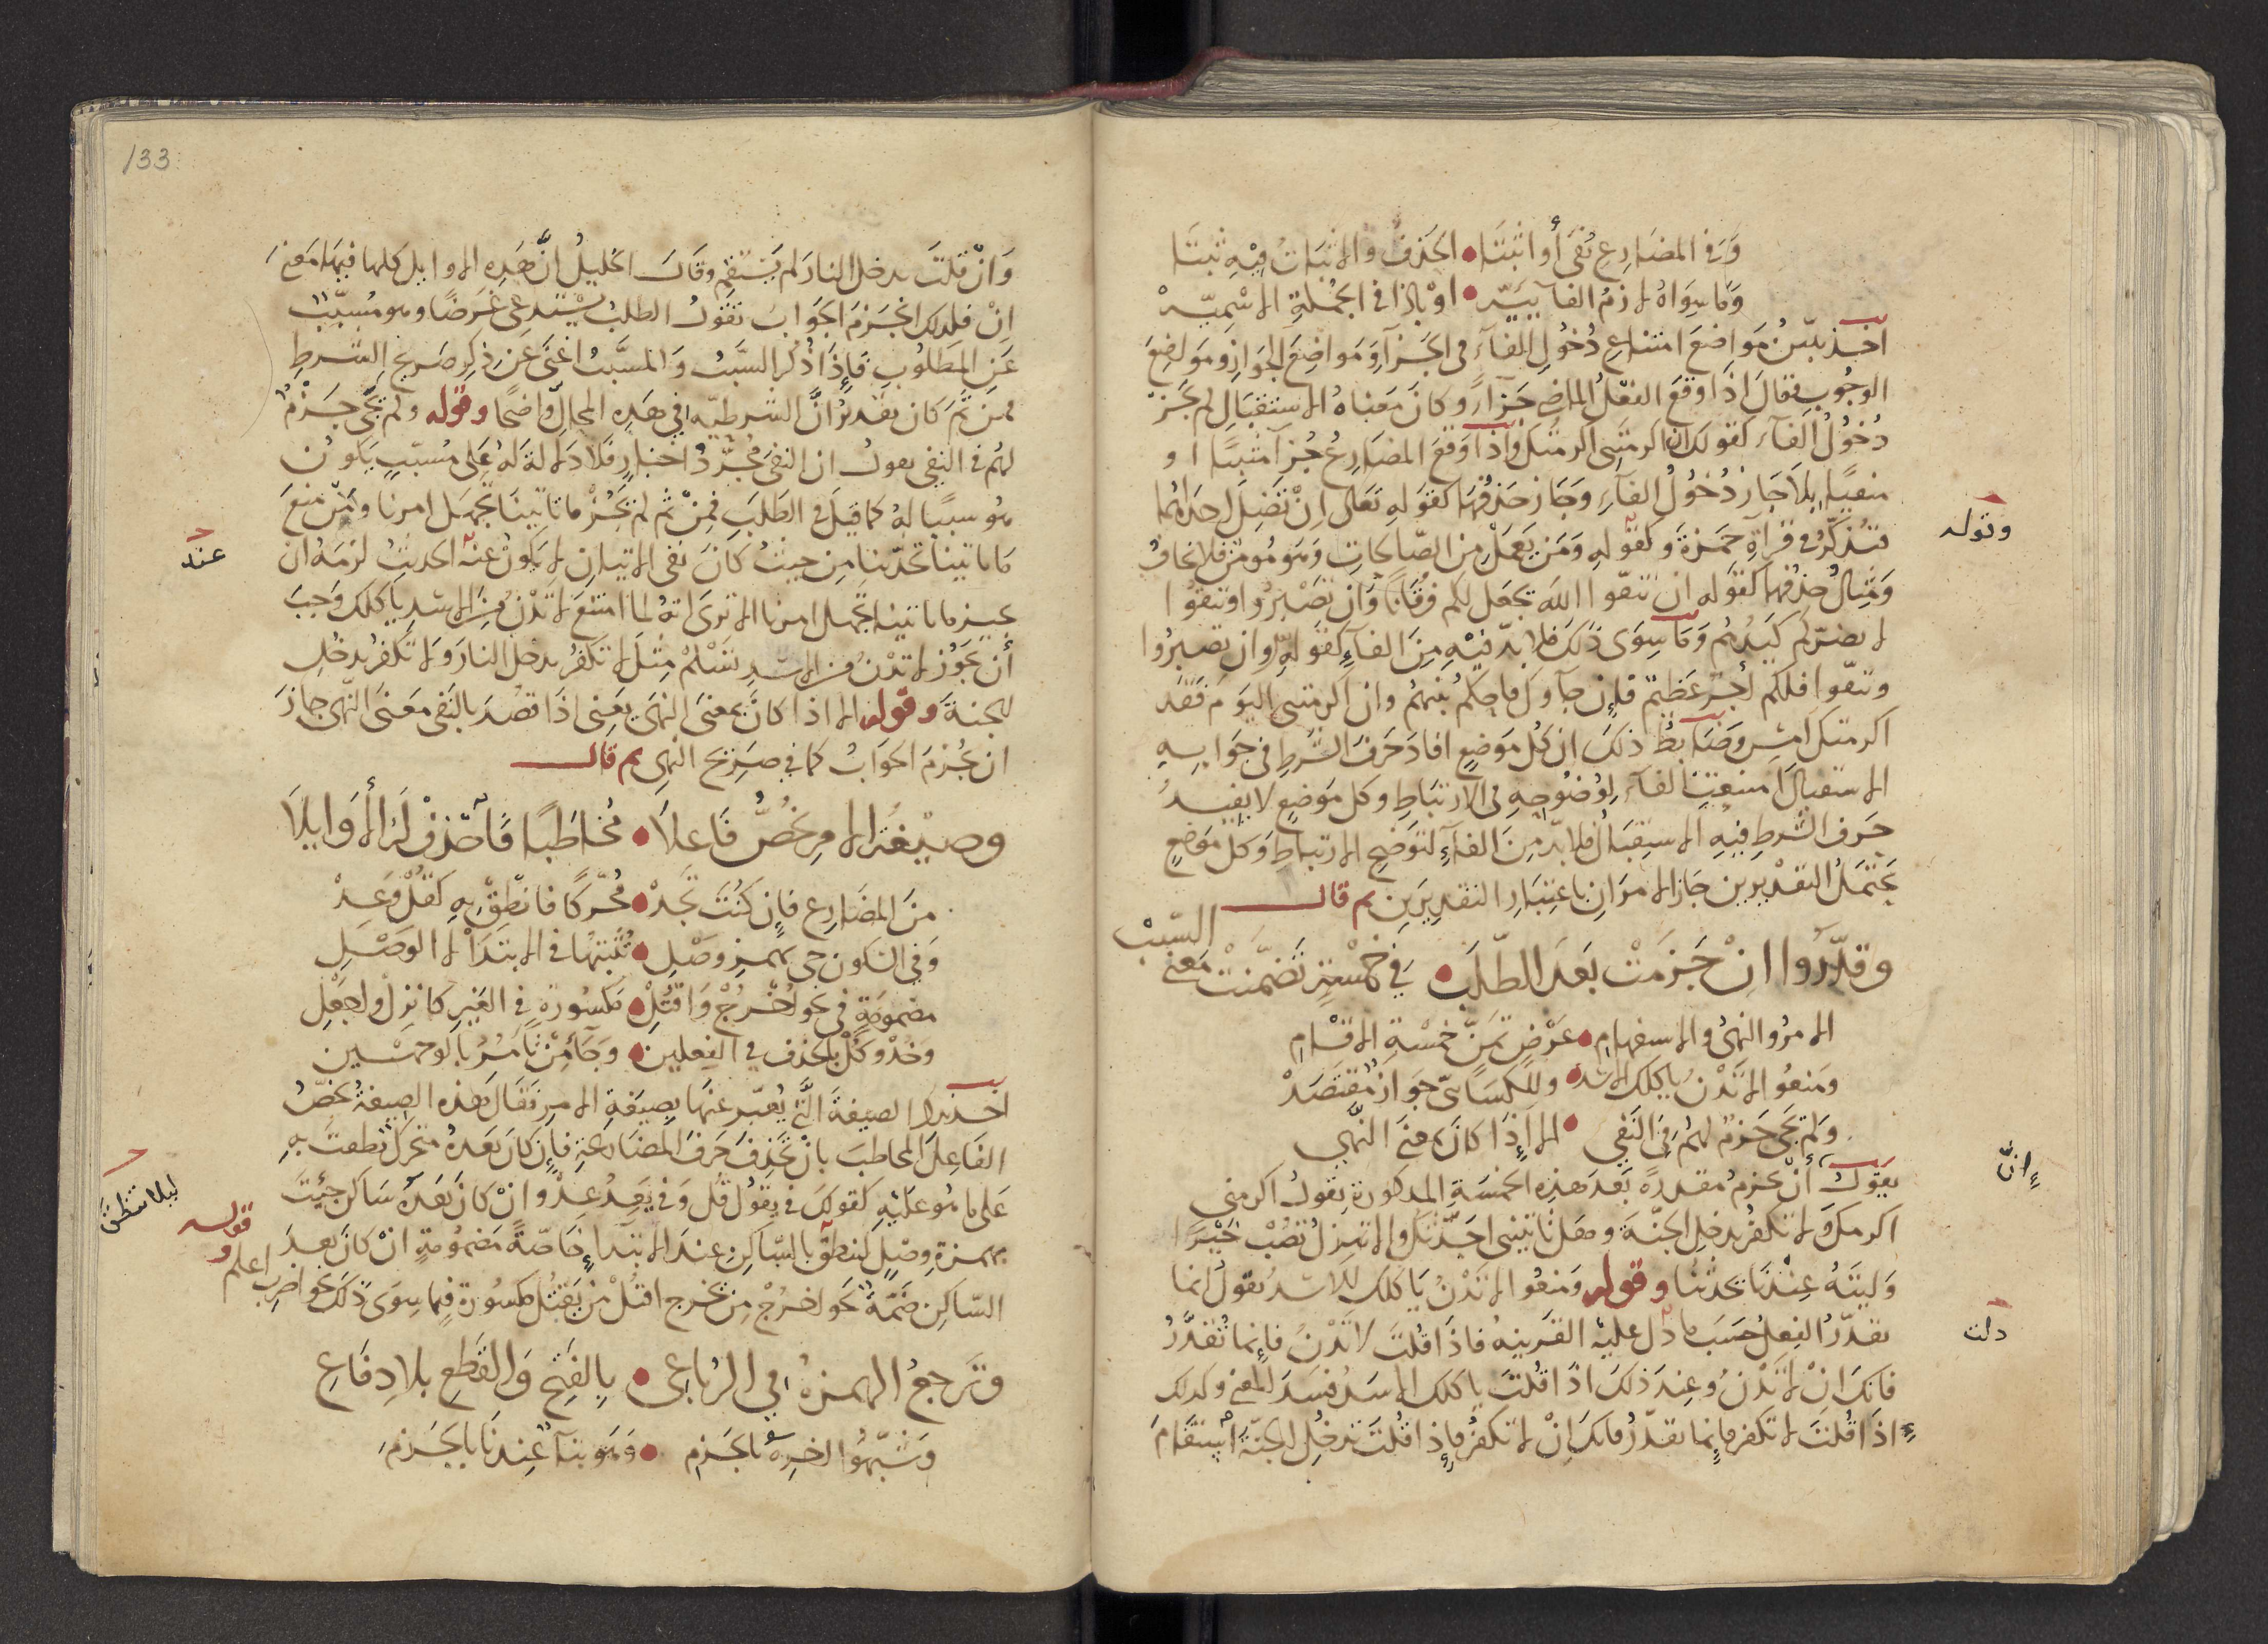 وفي المضارع نفى أو اثبتا الحذف والاثبات فيه ثبتا
وما سواه لازم الفآ بيّه او باذا في الجملة الاسميّه
اخذ يبيّن مواضع امتناع دخول الفآء في الجزآ ومواضع الجواز ومواضع
الوجوب فقال اذا وقع الفعل الماضي جزآءً وكان معناه الاستقبال لم يجز
دخول الفآء كقولك ان اكرمتني اكرمتك واذا وقع المضارع جزآ مثبتًا او
منفيًا بلا جاز دخول الفآء وجاز حذفها كقوله تعالى ان تضل احداهما
فتذكر في قرآة حمزة وكقوله ومن يعمل من الصالحات وهو مومن فلا يخاف
ومثال حذفها كقوله ان تتقوا الله يجعل لكم فرقانًا وان تصبروا وتتقوا
لا يضركم كيدهم وما سوى ذلك فلا بدّ فيه من الفآء كقوله وان تصبروا
وتتقوا فلكم اجر عظيم فان جآوك فاحكم بينهم وان اكرمتني اليوم فقد
اكرمتك امس وضابط ذلك ان كل موضع افاد حرف الشرط في جوابه
الاستقبال امتنعت الفآء لوضوحه في الارتباط وكل موضع لا يفيد
حرف الشرط فيه الاستقبال فلا بدّ من الفآء لتوضح الارتباط وكل موضع
يحتمل التقديرين جاز الامران باعتبار التقديرين ثم قال
وقدّروا ان جزمت بعد الطّلب في خمسة تضمّنت معنى السّبب
الامر والنهى والاستفهام عرض تمنّ خمسة الاقسام
ومنعوا لا تدن ياكلك الاسد وللكساىّ جواز مقتصد
ولم يجى جزم لهم في النفي الا اذا كان بمعنى النّهي
يقول ان يجزم مقدرة بعد هذه الخمسة المذكورة تقول اكرمني
اكرمك ولا تكفر تدخل الجنّة وهل تاتيني احدّثك والا تنزل تصب خيرًا
وليته عندنا يحدثنا وقوله ومنعوا لا تدن ياكلك الاسد يقول انما
يقدّر الفعل حسب ما دل عليه القرينة فاذا قلت لا تدن فانما تقدّر
فانك ان لا تدن وعند ذلك اذا قلت ياكلك الاسد فسد المعنى وكذلك
اذا قلت لا تكفر فانما تقدّر فانك ان لا تكفر فاذا قلت تدخل الجنّة استقام
وقوله
إنّ
دلت
133
وان قلت تدخل النار لم يستقم وقال الخليل انّ هذه الاوايل كلها فيها معنى
ان فلذلك انجزم الجواب تقول الطلب يستدعى غرضًا وهو مسبّب
عن المطلوب فاذا ذكر السبب والمسبّب اغنى عن ذكر صريح الشرط
فمن ثَمّ كان تقدير انّ الشرطيّه في هذه المحالّ واضحًا وقوله ولم يجى جزم
لهم في النفي يقول ان النفي مجرّد اخبار فلا دلالة له على مسبّب يكون
هو سببًا له كما قيل في الطلب فمن ثم لم يجز ما تاتينا تجهل امرنا ومن منع
ما تاتينا تحدّثنا من حيث كان نفى الاتيان لا يكون عنه الحديث لزمه ان
يجيز ما تاتينا تجهل امرنا الا ترى انه لما امتنع لا تدن من الاسد ياكلك وجب
أن يجوز لا تدن من الاسد تسلم مثل لا تكفر تدخل النار ولا تكفر تدخل
الجنة وقوله الا اذا كان بمعنى النهى يعنى اذا قصد بالنفي معنى النّهى جاز
ان يجزم الجواب كما في صريح النهى ثم قال
وصيغة الامر تخصّ فاعلا مخاطبًا فاحذف له الأوايلا
من المضارع فان كنت تجد محّركًا فانطق به كقل وعد
وفي السكون جى بهمز وصل تثبتها في الابتدا لا الوصل
مضمومة في نحو اخرج واقتل مكسورة في الغير كانزل واجعل
وخذ وكل بالحذف في الفعلين وجآ من تامر بالوجهين
اخذ يبين الصيغة الّتي يعّبر عنها بصيغة الامر فقال هذه الصيغة تخصّ
الفاعل المخاطب بان تحذف حرف المضارعة فان كان بعده متحرك نطقت به
على ما هو عليه كقولك في يقول قل وفي يعد عد وان كان بعده ساكن جئت
بهمزة وصل لينطق بالسّاكن عند الابتداء خاصّة مضمومة ان كان بعد
السّاكن ضمّة نحو اخرج من يخرج اقتل من يقتل مكسورة فيما سوى ذلك نحو اضرب اعلم
وترجع الهمزة في الرباعي بالفتح والقطع بلا دفاع
وشبّهوا اخره بالجزم وهو بنآ عندنا بالجزم
عند
ليلا تنطق
قوله و